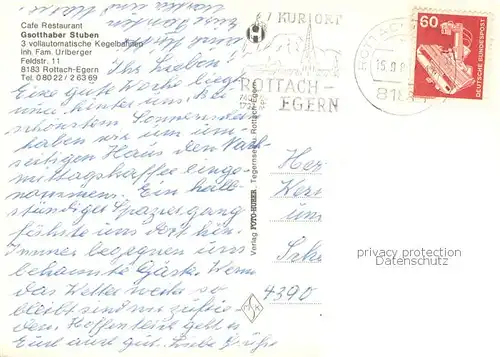 Cafe Restaurant
Gsotthaber Stuben
3 vollautomatische Kegelbahnen
Inh. Fam. Urlberger
Feldstr. 11
8183 Rottach-Egern
Tel. 08022 / 2 63 69
KURORT
ROTTACH-
EGERN
15.9.8
818
60
DEUTSCHE BUNDESPOST
Ihr Lieben!
Eine gute Woche liegt
hinter uns
schönstem Sonnenschein
haben wir im
seitigen Haus den Nach
mittagskaffee einge
nommen. Ein halb
stündiger Spaziergang
führte uns dort hin.
Immer begegnen uns
bekannte Gäste. Wenn
das Wetter weiter so
bleibt sind wir zufrie
den. Hoffentlich geht es
Euch auch gut. Liebe Grüße
Verlag FOTO-HUBER Tegernsee u. Rottach-Egern
Her
um
4390
privacy protection
Datenschutz